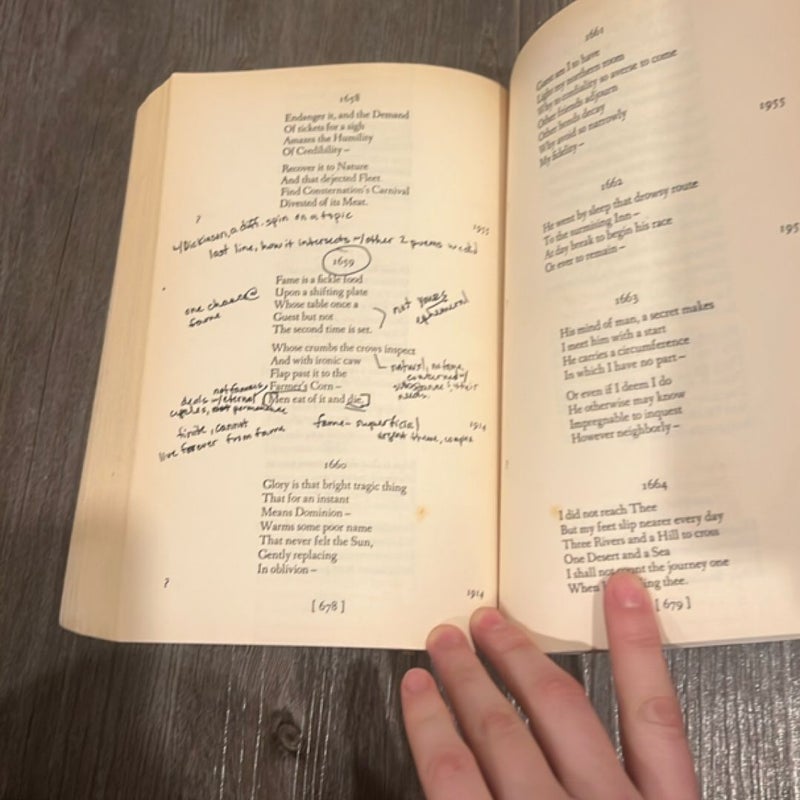 1658
Endanger it, and the Demand
Of tickets for a sigh
Amazes the Humility
Of Credibility –
Recover it to Nature
And that dejected Fleet
Find Consternation's Carnival
Divested of its Meat.
?
1955
w/Dickinson, a diff. spin on a topic
last line, how it intersects w/other 2 poems
1659
Fame is a fickle food
Upon a shifting plate
Whose table once a
Guest but not
The second time is set.
one chance @
fame
not yours
ephemeral
Whose crumbs the crows inspect
And with ironic caw
Flap past it to the
Farmer's Corn –
Men eat of it and die.
natural, no fame,
concerned w/
substance, their
needs.
not famous
deals w/eternal
cycles, not permanence
finite, cannot
live forever from fame
fame – superficial
urgent theme, complex
1914
1660
Glory is that bright tragic thing
That for an instant
Means Dominion –
Warms some poor name
That never felt the Sun,
Gently replacing
In oblivion –
?
1914
[ 678 ]
1661
Guest am I to have
Light my northern room
Why to cordiality so averse to come
Other friends adjourn
Other bonds decay
Why avoid so narrowly
My fidelity –
1955
1662
He went by sleep that drowsy route
To the surmising Inn –
At day break to begin his race
Or ever to remain –
195
1663
His mind of man, a secret makes
I meet him with a start
He carries a circumference
In which I have no part –
Or even if I deem I do
He otherwise may know
Impregnable to inquest
However neighborly –
1664
I did not reach Thee
But my feet slip nearer every day
Three Rivers and a Hill to cross
One Desert and a Sea
I shall not count the journey one
When ing thee.
[ 679 ]